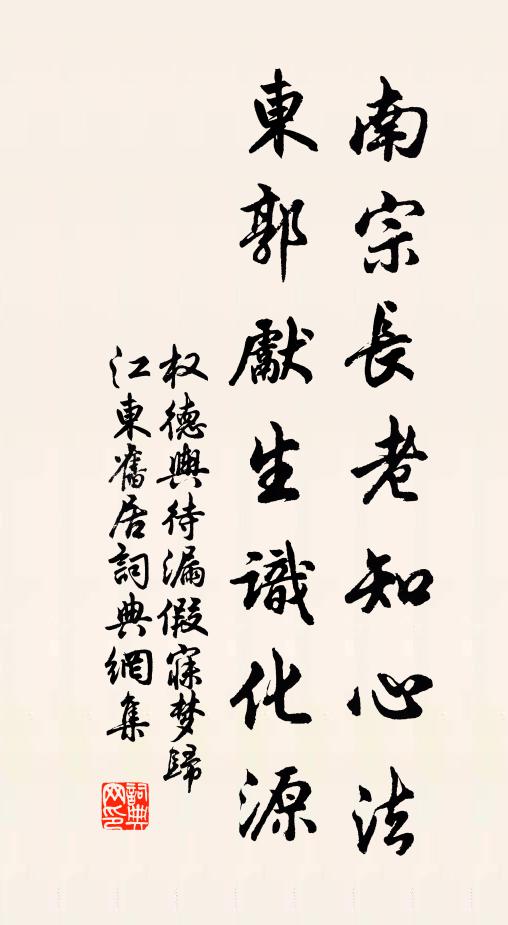 南宗長老知心法
東郭獻生識化源
权德輿待漏假寐梦歸
江東舊居詞典網集
詞典
网印